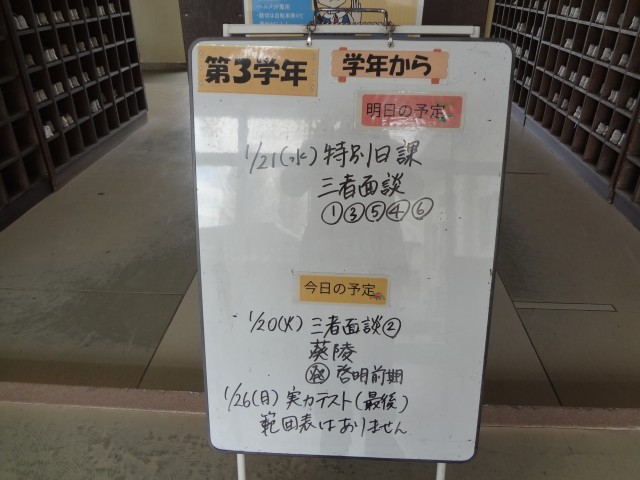 第3学年 学年から
明日の予定
1/21(水) 特別日課
三者面談
①③⑤④⑥
今日の予定
1/20(火) 三者面談②
葵陵
啓明前期
1/26(月) 実力テスト(最後)
範囲表はありません